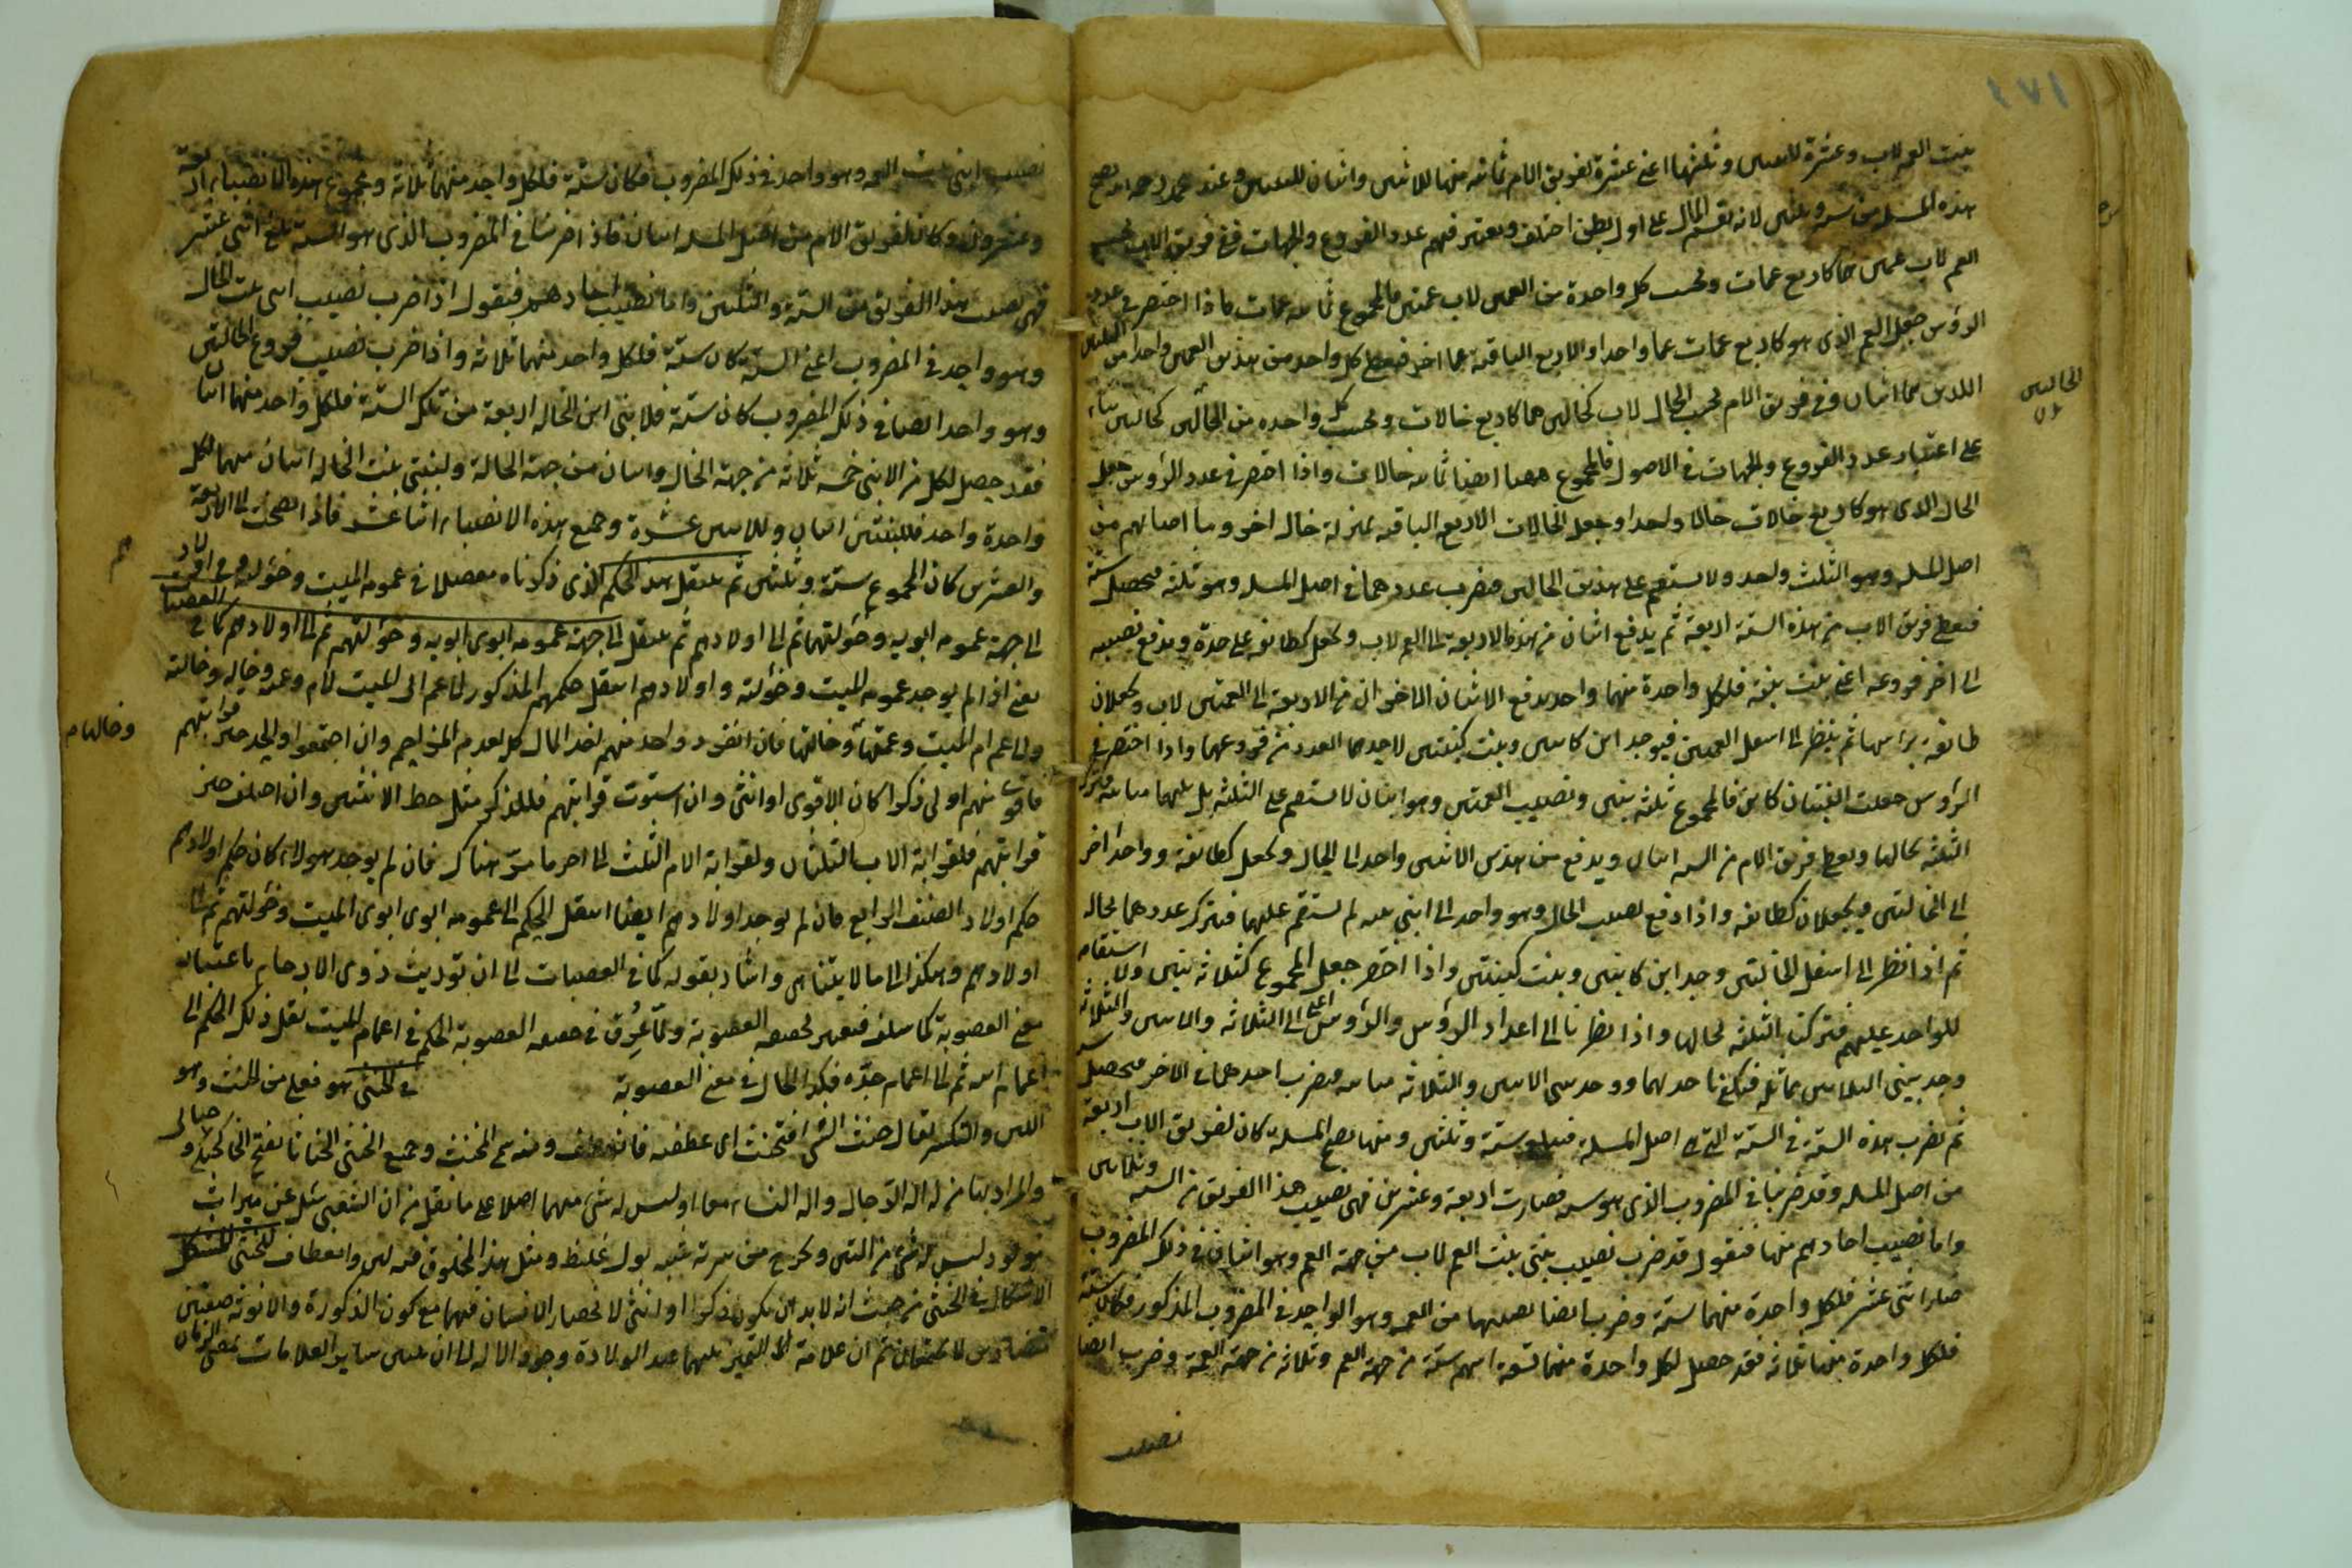 ١٧١
بنت العم لاب وعشرة للابنين وثلثها اعني عشرة لفريق الام ثمانية منها للابنين واثنان للبنتين وعند محمد رحمه الله تصح
هذه المسئلة من ستة وثلثين لانه يقسم المال على اول بطن اختلف ويعتبر فيهم عدد الفروع والجهات ففي فريق الاب يحسب
العم لاب عمين هما كاربع عمات ويحسب كل واحدة من العمتين لاب عمتين فالمجموع ثمانية عمات فاذا اختصر في عدد
الرؤس جعل العم الذي هو كاربع عمات عما واحدا والاربع الباقية عما اخر فيعطى كل واحد من هذين العمين واحدا من
اللذين هما اثنان وفي فريق الام يحسب الخال لاب كخالين هما كاربع خالات ويحسب كل واحدة من الخالتين كخالتين بناء
الخالتين
على اعتبار عدد الفروع والجهات في الاصول فالمجموع ههنا ايضا ثمانية خالات واذا اختصر في عدد الرؤس جعل
الخال الذي هو كاربع خالات خالا واحدا وجعل الخالات الاربع الباقية بمنزلة خال اخر وما اصابهم من
اصل المسئلة وهو الثلث واحد ولا يستقيم على هذين الخالين فيضرب عددهما في اصل المسئلة وهو ثلثة فيحصل ستة
فيعطى فريق الاب من هذه الستة اربعة ثم يدفع اثنان من هذه الاربعة الى العم لاب ويجعل كطائفة على حدة ويدفع نصيبه
الى اخر فروعه اعني بنت بنته فلكل واحدة منهما واحد يدفع الاثنان الاخران من الاربعة الى العمتين لاب ويجعلان
طائفة براسها ثم ينظر الى اسفل العمتين فيوجد ابن كابنين وبنت كبنتين لاحدهما العدد من فروعهما واذا اختصر في
الرؤس جعلت البنتان كابن فالمجموع ثلثة بنين ونصيب العمتين وهو اثنان لا يستقيم على الثلثة بل بينهما مباينة فتترك
الثلثة بحالها ويعطى فريق الام من الستة اثنان ويدفع من هذين الاثنين واحد الى الخال ويجعل كطائفة وواحد اخر
الى الخالتين ويجعلان كطائفة واذا دفع نصيب الخال وهو واحد الى ابني بنته لم يستقم عليهما فيترك عددهما بحاله
ثم اذا نظر الى اسفل الخالتين وجد ابن كابنين وبنت كبنتين واذا اختصر جعل المجموع كثلاثة بنين ولا استقامة
للواحد عليهم فتركت الثلثة بحالها واذا نظرنا الى اعداد الرؤس والرؤس اعني الى الثلاثة والاثنين والثلاثة
وجد بيني الثلاثتين مماثلة فيكتفى باحدهما ووجد بين الاثنين والثلاثة مباينة فيضرب احدهما في الاخر فيحصل ستة
ثم يضرب هذه الستة في الستة التي هي اصل المسئلة فيبلغ ستة وثلثين ومنها تصح المسئلة كان لفريق الاب اربعة
من اصل المسئلة وقد ضربنا في المضروب الذي هو ستة فصارت اربعة وعشرين فهي نصيب هذا الفريق من الستة وثلاثين
واما نصيب احادهم منها فنقول قد ضرب نصيب بنتي بنت العم لاب من جهة العم وهو اثنان في ذلك المضروب
صار اثنى عشر فلكل واحدة منهما ستة وضرب ايضا نصيبهما من العمة وهو الواحد في المضروب المذكور فكان ستة
فلكل واحدة منهما ثلاثة فقد حصل لكل واحدة منهما تسعة اسهم ستة من جهة العم وثلاثة من جهة العمة وضرب ايضا
نصيب
نصيب ابني بنت العمة وهو واحد في ذلك المضروب فكان ستة فلكل واحد منهما ثلاثة ومجموع هذه الانصباء اربعة
وعشرون وكان لفريق الام من اصل المسئلة اثنان فاذا ضربنا في المضروب الذي هو الستة بلغ اثني عشر
فهي نصيب هذا الفريق من الستة والثلثين واما نصيب احادهم فنقول اذا ضرب نصيب ابني بنت الخال
وهو واحد في المضروب اعني الستة كان ستة فلكل واحد منهما ثلاثة واذا ضرب نصيب فروع الخالتين
وهو واحد ايضا في ذلك المضروب كان ستة فلابني ابن الخالة اربعة من تلك الستة فلكل واحد منهما اثنان
فقد حصل لكل من الابنين خمسة ثلاثة من جهة الخال واثنان من جهة الخالة ولبنتي بنت الخالة اثنان منهما لكل
واحدة واحد فللبنتين اثنان وللابنين عشرة وجميع هذه الانصباء اثنا عشر فاذا اضيفت الى الاربعة
والعشرين كان المجموع ستة وثلثين ثم ينتقل هذا الحكم الذي ذكرناه مفصلا في عمومة الميت وخؤلته وفي اولادهم
الى جهة عمومة ابويه وخؤلتهما ثم الى اولادهم ثم ينتقل الى جهة عمومة ابوي ابويه وخؤلتهم ثم الى اولادهم كما في العصبات
يعني اذا لم يوجد عمومة الميت وخؤلته واولادهم انتقل حكمهم المذكور الى عم ابي الميت لام وعمته وخاله وخالته
والى عم ام الميت وعمتها وخالتها فان انفرد واحد منهم اخذ المال كله لعدم المزاحم وان اجتمعوا واتحد حيز قرابتهم
وخالها
فالاقوى منهم اولى ذكرا كان الاقوى او انثى وان استوت قرابتهم فللذكر مثل حظ الانثيين وان اختلف حيز
قرابتهم فلقرابة الاب الثلثان ولقرابة الام الثلث الى اخر ما مر هناك فان لم يوجد هؤلاء كان حكم اولادهم
حكم اولاد الصنف الرابع فان لم يوجد اولادهم ايضا انتقل الحكم الى عمومة ابوي ابوي الميت وخؤلتهم ثم الى
اولادهم وهكذا الى ما لا يتناهى واشار بقوله كما في العصبات الى ان توريث ذوي الارحام باعتبار
معنى العصوبة كما سلف فيعتبر بحقيقة العصوبة ولما عرف في حقيقة العصوبة الحكم في اعمام الميت نقل ذلك الحكم الى
اعمام ابيه ثم الى اعمام جده فكذا الحال في معنى العصوبة في الخنثى هو فعلى من الخنث وهو
اللين والتكسر يقال خنثت الشئ فتخنث اي عطفته فانعطف ومنه سمي المخنث وجمع الخنثى الخناثى بفتح الخاء كحبلى وحبالى
والمراد بها من له الة الرجال والة النساء معا او ليس له شئ منهما اصلا على ما نقل من ان الشعبي سئل عن ميراث
مولود ليس له شئ من التين ويخرج من سرته شبه بول غليظ ومثل هذا المخلوق فيه لين وانعطاف للخنثى المشكل
الاشكال في الخنثى من حيث انه لابد ان يكون ذكرا او انثى لانحصار الانسان فيهما مع كون الذكورة والانوثة صفتين
متضادتين لا تجتمعان ثم ان علامة التمييز بينهما عند الولادة وجود الالة الى ان يتبين سائر العلامات بمضي الزمان